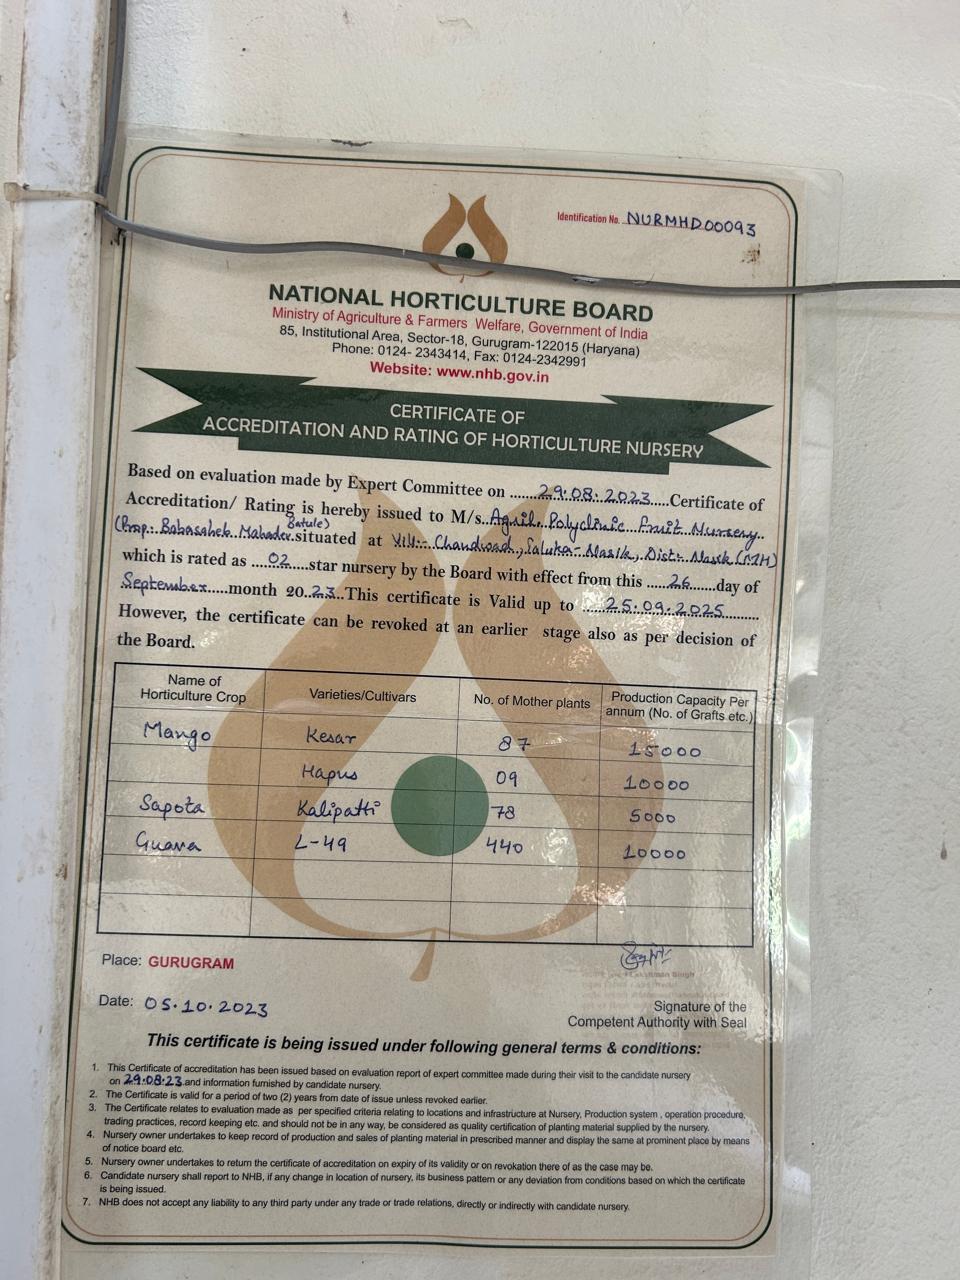 Identification No. NURMHD00093
NATIONAL HORTICULTURE BOARD
Ministry of Agriculture & Farmers Welfare, Government of India
85, Institutional Area, Sector-18, Gurugram-122015 (Haryana)
Phone: 0124- 2343414, Fax: 0124-2342991
Website: www.nhb.gov.in
CERTIFICATE OF
ACCREDITATION AND RATING OF HORTICULTURE NURSERY
Based on evaluation made by Expert Committee on ......29.08.2023....Certificate of
Accreditation/ Rating is hereby issued to M/s..Agril. Polyclinic Fruit Nursery..
(Prop:- Babasaheb Mahadev Batule) situated at Vill:- Chandwad, Taluka- Nasik, Dist:- Nasik (MH)
which is rated as ....02....star nursery by the Board with effect from this .....26.....day of
September.....month 20..23..This certificate is Valid up to .....25.09.2025........
However, the certificate can be revoked at an earlier stage also as per decision of
the Board.
Name of Horticulture Crop Varieties/Cultivars No. of Mother plants Production Capacity Per annum (No. of Grafts etc.)
Mango Kesar 87 15000
Hapus 09 10000
Sapota Kalipatti 78 5000
Guava L-49 440 10000
Place: GURUGRAM
Date: 05.10.2023
Lakshman Singh
Signature of the
Competent Authority with Seal
This certificate is being issued under following general terms & conditions:
1. This Certificate of accreditation has been issued based on evaluation report of expert committee made during their visit to the candidate nursery
on 29.08.23.and information furnished by candidate nursery.
2. The Certificate is valid for a period of two (2) years from date of issue unless revoked earlier.
3. The Certificate relates to evaluation made as per specified criteria relating to locations and infrastructure at Nursery, Production system , operation procedure,
trading practices, record keeping etc. and should not be in any way, be considered as quality certification of planting material supplied by the nursery.
4. Nursery owner undertakes to keep record of production and sales of planting material in prescribed manner and display the same at prominent place by means
of notice board etc.
5. Nursery owner undertakes to return the certificate of accreditation on expiry of its validity or on revokation there of as the case may be.
6. Candidate nursery shall report to NHB, if any change in location of nursery, its business pattern or any deviation from conditions based on which the certificate
is being issued.
7. NHB does not accept any liability to any third party under any trade or trade relations, directly or indirectly with candidate nursery.